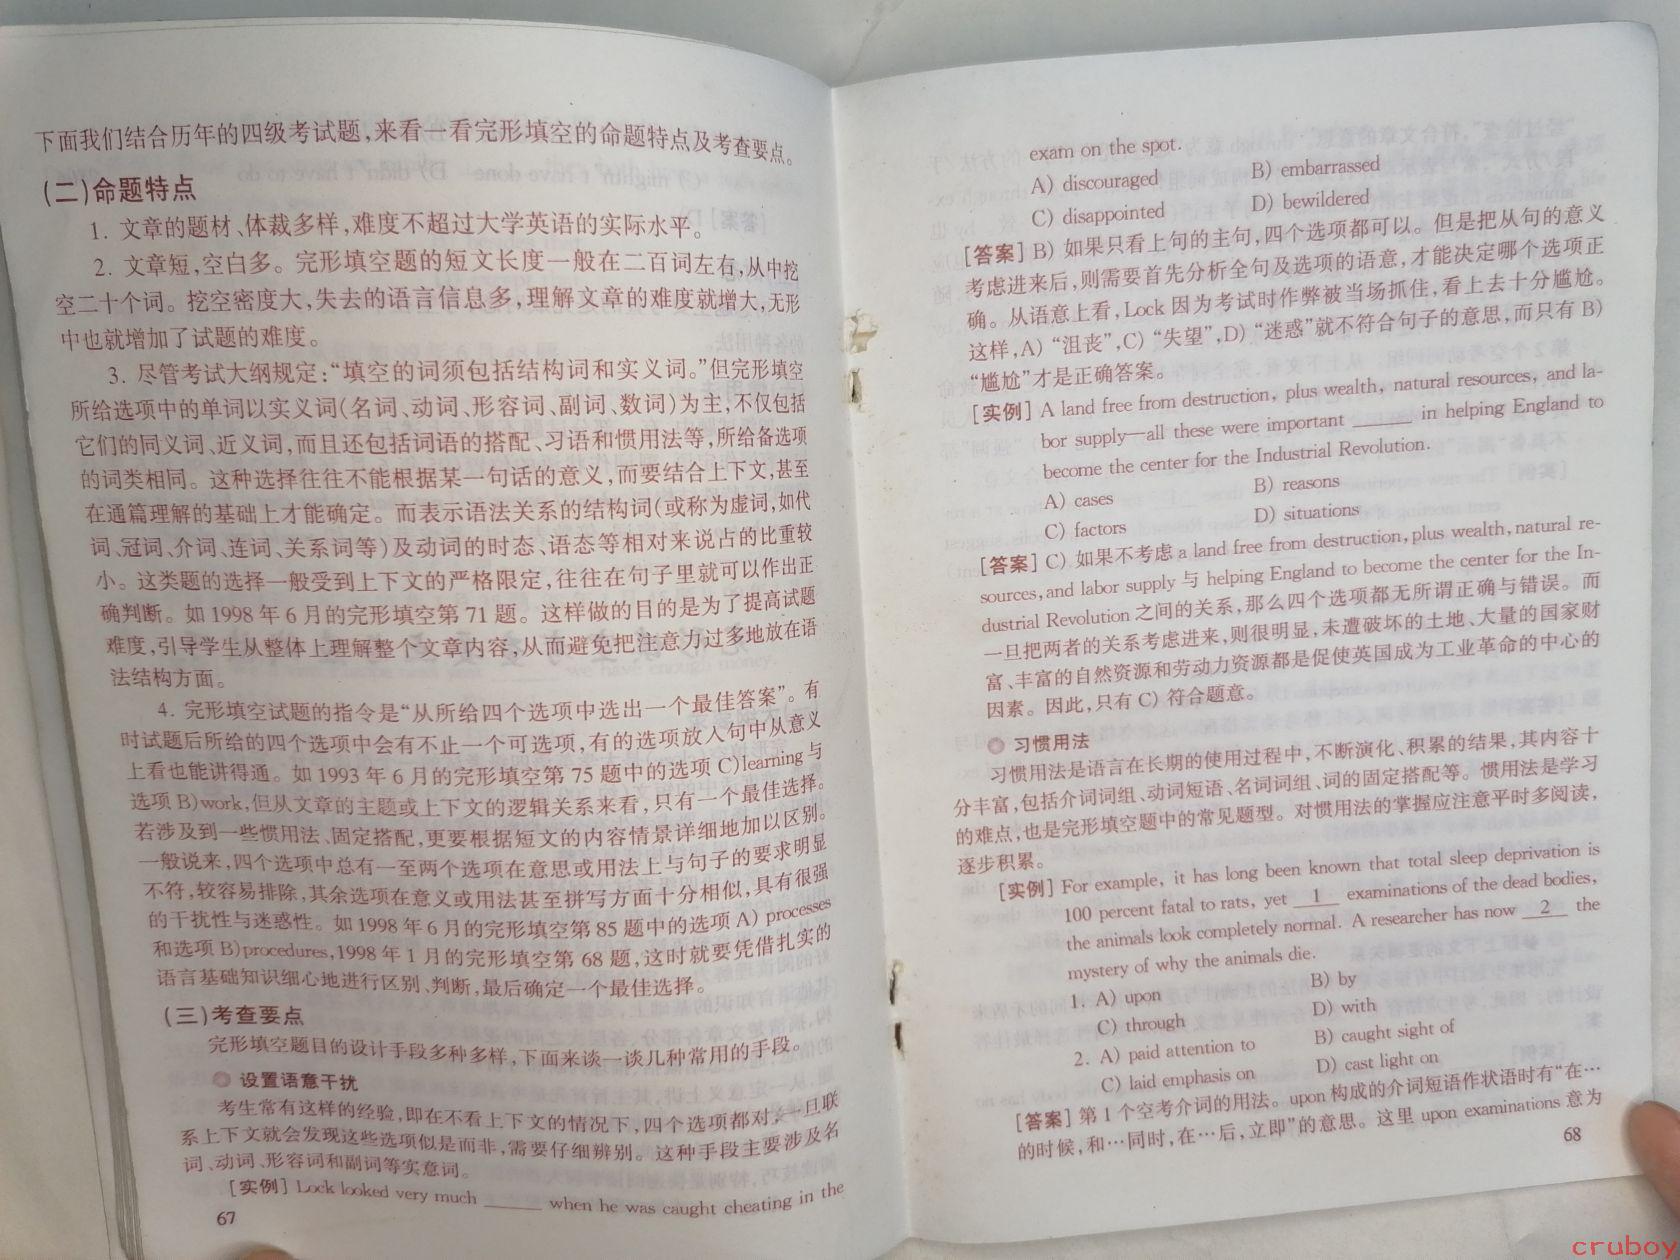 下面我们结合历年的四级考试题,来看一看完形填空的命题特点及考查要点。
(二)命题特点
1. 文章的题材、体裁多样,难度不超过大学英语的实际水平。
2. 文章短,空白多。完形填空题的短文长度一般在二百词左右,从中挖
空二十个词。挖空密度大,失去的语言信息多,理解文章的难度就增大,无形
中也就增加了试题的难度。
3. 尽管考试大纲规定:“填空的词须包括结构词和实义词。”但完形填空
所给选项中的单词以实义词(名词、动词、形容词、副词、数词)为主,不仅包括
它们的同义词、近义词,而且还包括词语的搭配、习语和惯用法等,所给备选项
的词类相同。这种选择往往不能根据某一句话的意义,而要结合上下文,甚至
在通篇理解的基础上才能确定。而表示语法关系的结构词(或称为虚词,如代
词、冠词、介词、连词、关系词等)及动词的时态、语态等相对来说占的比重较
小。这类题的选择一般受到上下文的严格限定,往往在句子里就可以作出正
确判断。如 1998 年 6 月的完形填空第 71 题。这样做的目的是为了提高试题
难度,引导学生从整体上理解整个文章内容,从而避免把注意力过多地放在语
法结构方面。
4. 完形填空试题的指令是“从所给四个选项中选出一个最佳答案”。有
时试题后所给的四个选项中会有不止一个可选项,有的选项放入句中从意义
上看也能讲得通。如 1993 年 6 月的完形填空第 75 题中的选项 C)learning 与
选项 B)work,但从文章的主题或上下文的逻辑关系来看,只有一个最佳选择。
若涉及到一些惯用法、固定搭配,更要根据短文的内容情景详细地加以区别。
一般说来,四个选项中总有一至两个选项在意思或用法上与句子的要求明显
不符,较容易排除,其余选项在意义或用法甚至拼写方面十分相似,具有很强
的干扰性与迷惑性。如 1998 年 6 月的完形填空第 85 题中的选项 A) processes
和选项 B)procedures,1998 年 1 月的完形填空第 68 题,这时就要凭借扎实的
语言基础知识细心地进行区别、判断,最后确定一个最佳选择。
(三)考查要点
完形填空题目的设计手段多种多样,下面来谈一谈几种常用的手段。
设置语意干扰
考生常有这样的经验,即在不看上下文的情况下,四个选项都对,一旦联
系上下文就会发现这些选项似是而非,需要仔细辨别。这种手段主要涉及名
词、动词、形容词和副词等实意词。
[实例] Lock looked very much ______ when he was caught cheating in the
67
exam on the spot.
A) discouraged B) embarrassed
C) disappointed D) bewildered
[答案] B) 如果只看上句的主句,四个选项都可以。但是把从句的意义
考虑进来后,则需要首先分析全句及选项的语意,才能决定哪个选项正
确。从语意上看,Lock 因为考试时作弊被当场抓住,看上去十分尴尬。
这样,A) “沮丧”,C) “失望”,D) “迷惑”就不符合句子的意思,而只有 B)
“尴尬”才是正确答案。
[实例] A land free from destruction, plus wealth, natural resources, and la-
bor supply—all these were important ______ in helping England to
become the center for the Industrial Revolution.
A) cases B) reasons
C) factors D) situations
[答案] C) 如果不考虑 a land free from destruction, plus wealth, natural re-
sources, and labor supply 与 helping England to become the center for the In-
dustrial Revolution 之间的关系,那么四个选项都无所谓正确与错误。而
一旦把两者的关系考虑进来,则很明显,未遭破坏的土地、大量的国家财
富、丰富的自然资源和劳动力资源都是促使英国成为工业革命的中心的
因素。因此,只有 C) 符合题意。
习惯用法
习惯用法是语言在长期的使用过程中,不断演化、积累的结果,其内容十
分丰富,包括介词词组、动词短语、名词词组、词的固定搭配等。惯用法是学习
的难点,也是完形填空题中的常见题型。对惯用法的掌握应注意平时多阅读,
逐步积累。
[实例] For example, it has long been known that total sleep deprivation is
100 percent fatal to rats, yet __1__ examinations of the dead bodies,
the animals look completely normal. A researcher has now __2__ the
mystery of why the animals die.
1. A) upon B) by
C) through D) with
2. A) paid attention to B) caught sight of
C) laid emphasis on D) cast light on
[答案] 第 1 个空考介词的用法。upon 构成的介词短语作状语时有“在…
的时候,和…同时,在…后,立即”的意思。这里 upon examinations 意为
68
cruboy